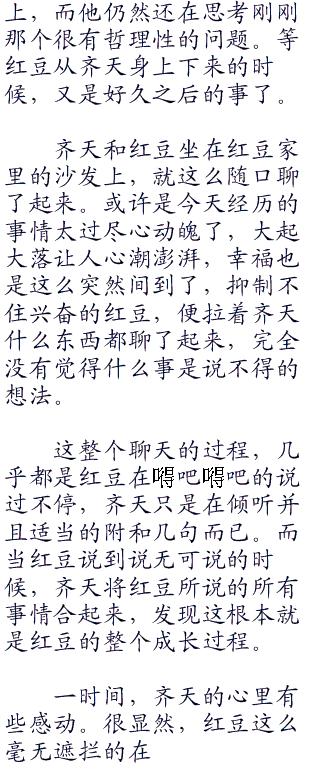 上，而他仍然还在思考刚刚
那个很有哲理性的问题。等
红豆从齐天身上下来的时
候，又是好久之后的事了。
齐天和红豆坐在红豆家
里的沙发上，就这么随口聊
了起来。或许是今天经历的
事情太过尽心动魄了，大起
大落让人心潮澎湃，幸福也
是这么突然间到了，抑制不
住兴奋的红豆，便拉着齐天
什么东西都聊了起来，完全
没有觉得什么事是说不得的
想法。
这整个聊天的过程，几
乎都是红豆在嘚吧嘚吧的说
过不停，齐天只是在倾听并
且适当的附和几句而已。而
当红豆说到说无可说的时
候，齐天将红豆所说的所有
事情合起来，发现这根本就
是红豆的整个成长过程。
一时间，齐天的心里有
些感动。很显然，红豆这么
毫无遮拦的在